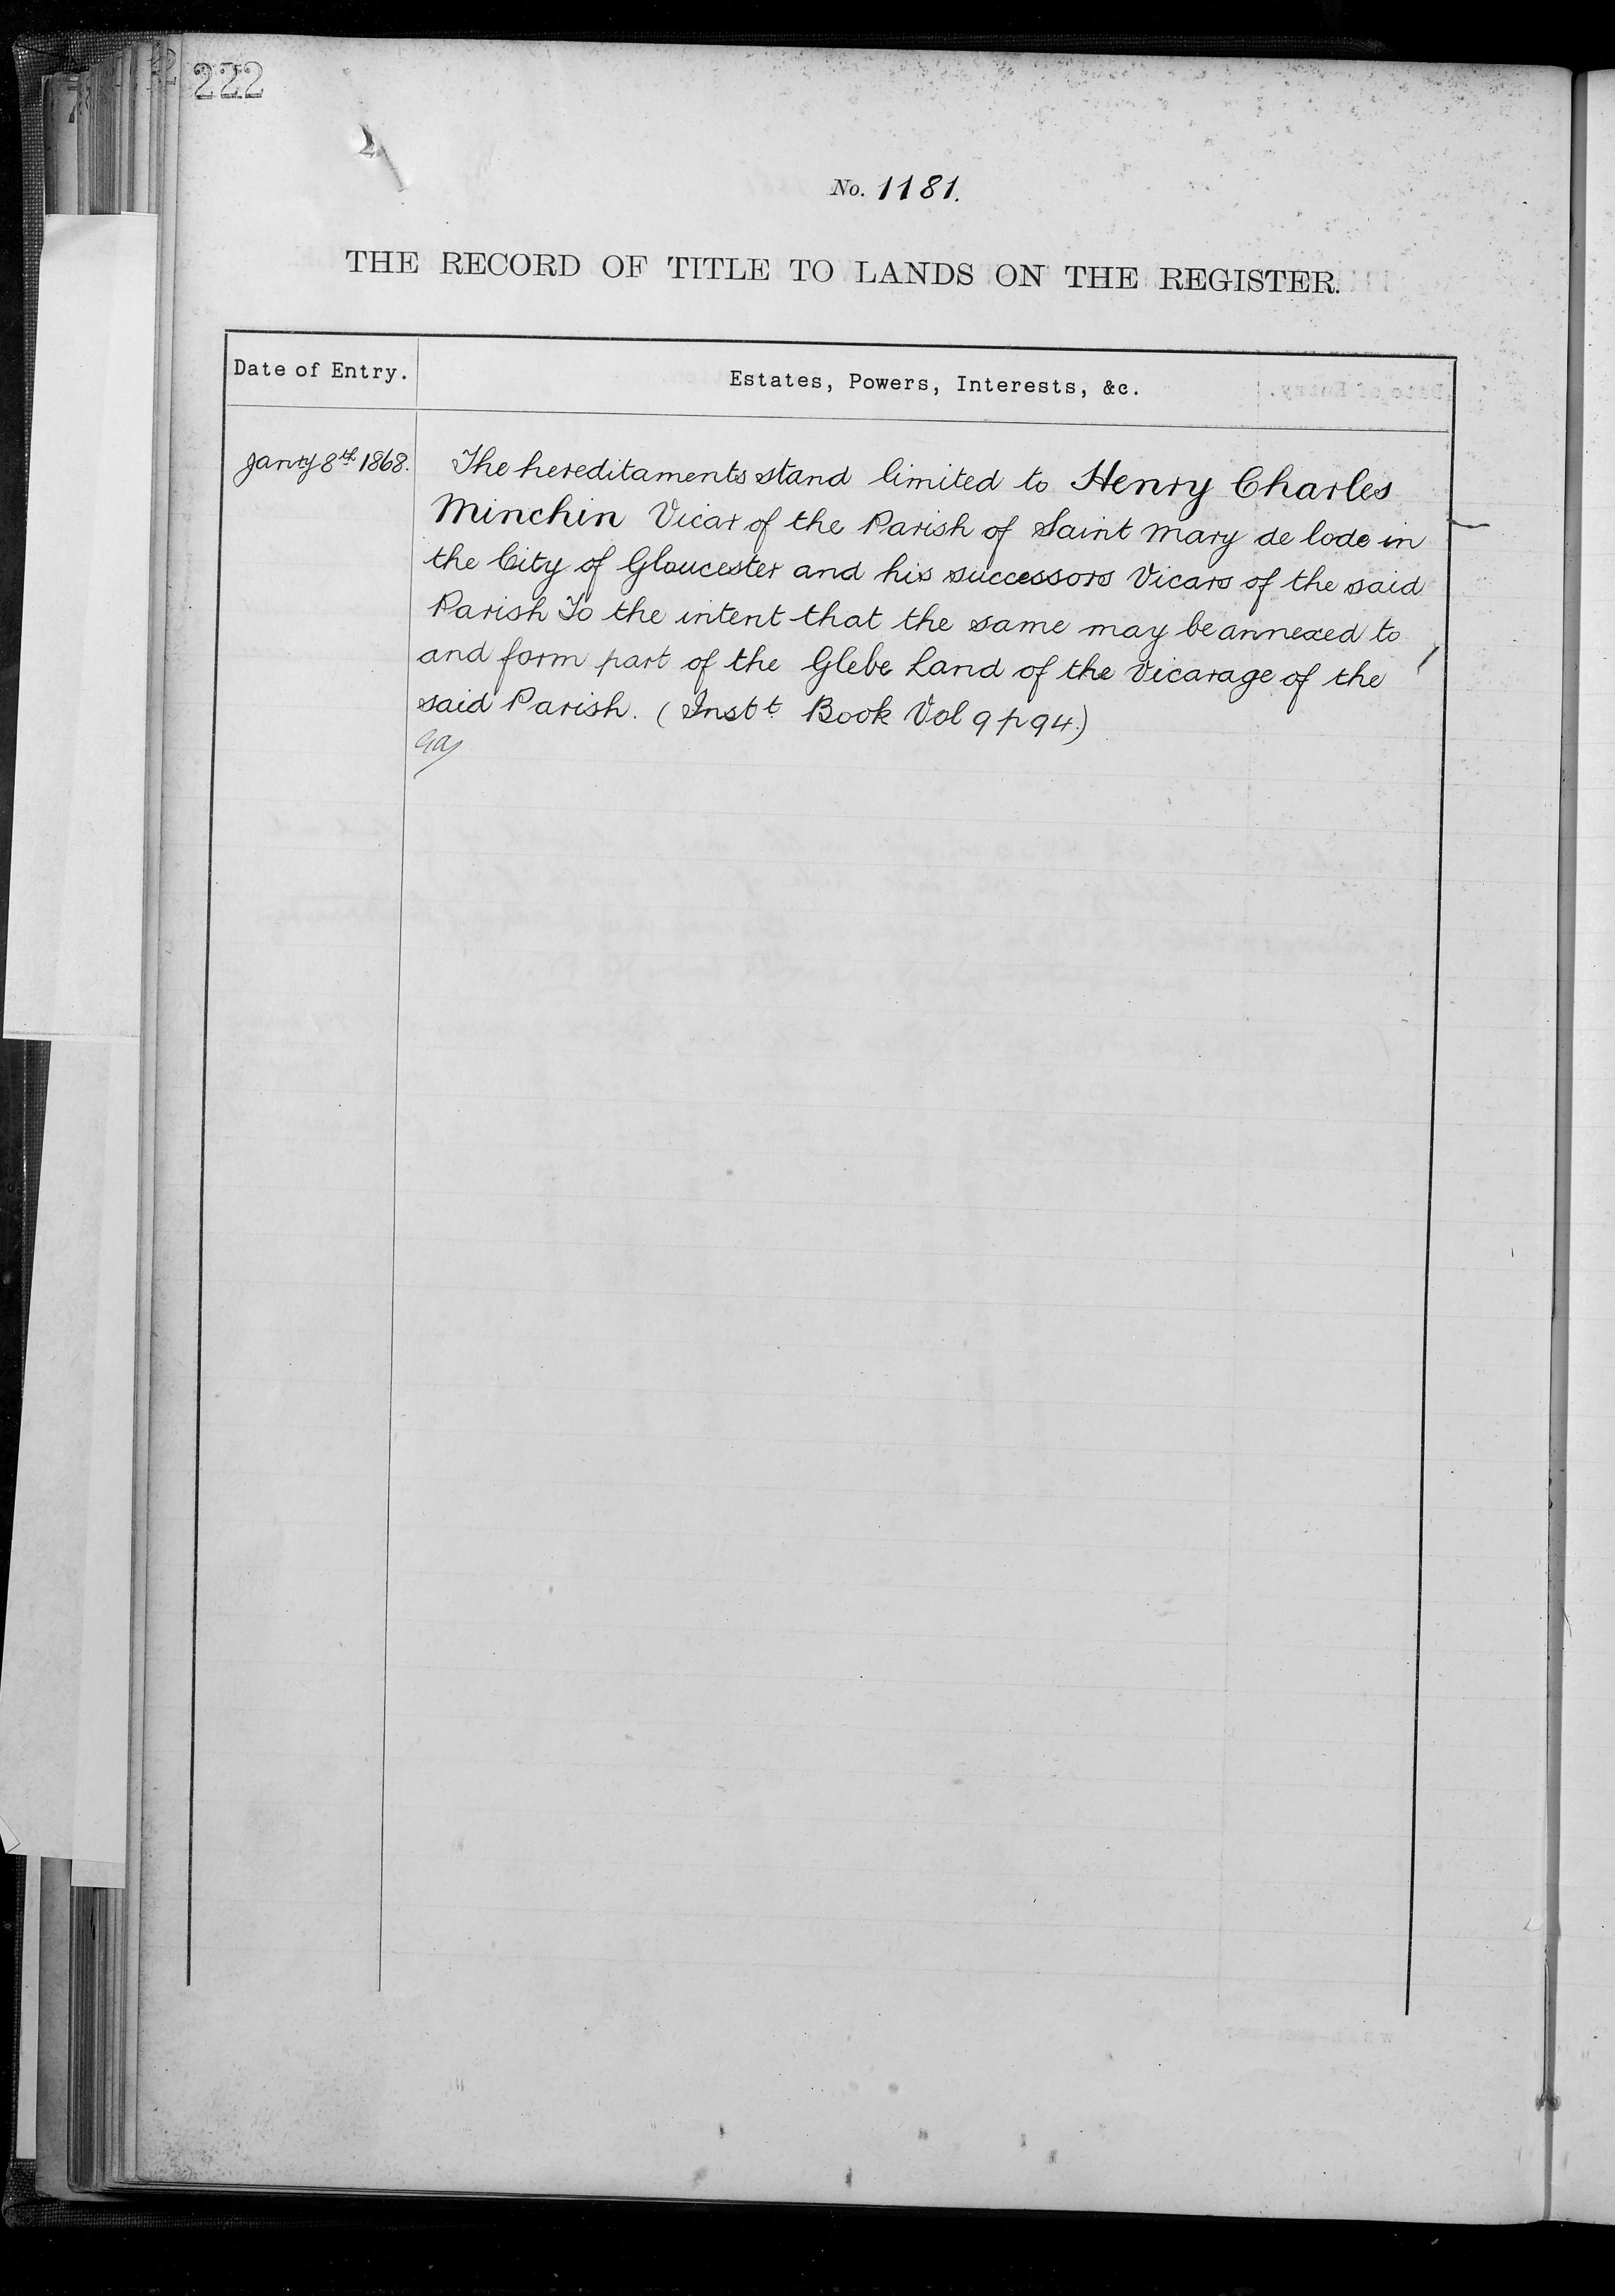 222
No. 1181.
THE RECORD OF TITLE TO LANDS ON THE REGISTER.
Date of Entry.
Estates, Powers, Interests, &c.
Jany 8th 1868.
The hereditaments stand limited to Henry Charles
Minchin Vicar of the Parish of Saint Mary de lode in
the City of Gloucester and his successors Vicars of the said
Parish To the intent that the same may be annexed to
and form part of the Glebe Land of the Vicarage of the
said Parish. (Instt Book Vol 9 p 94.)